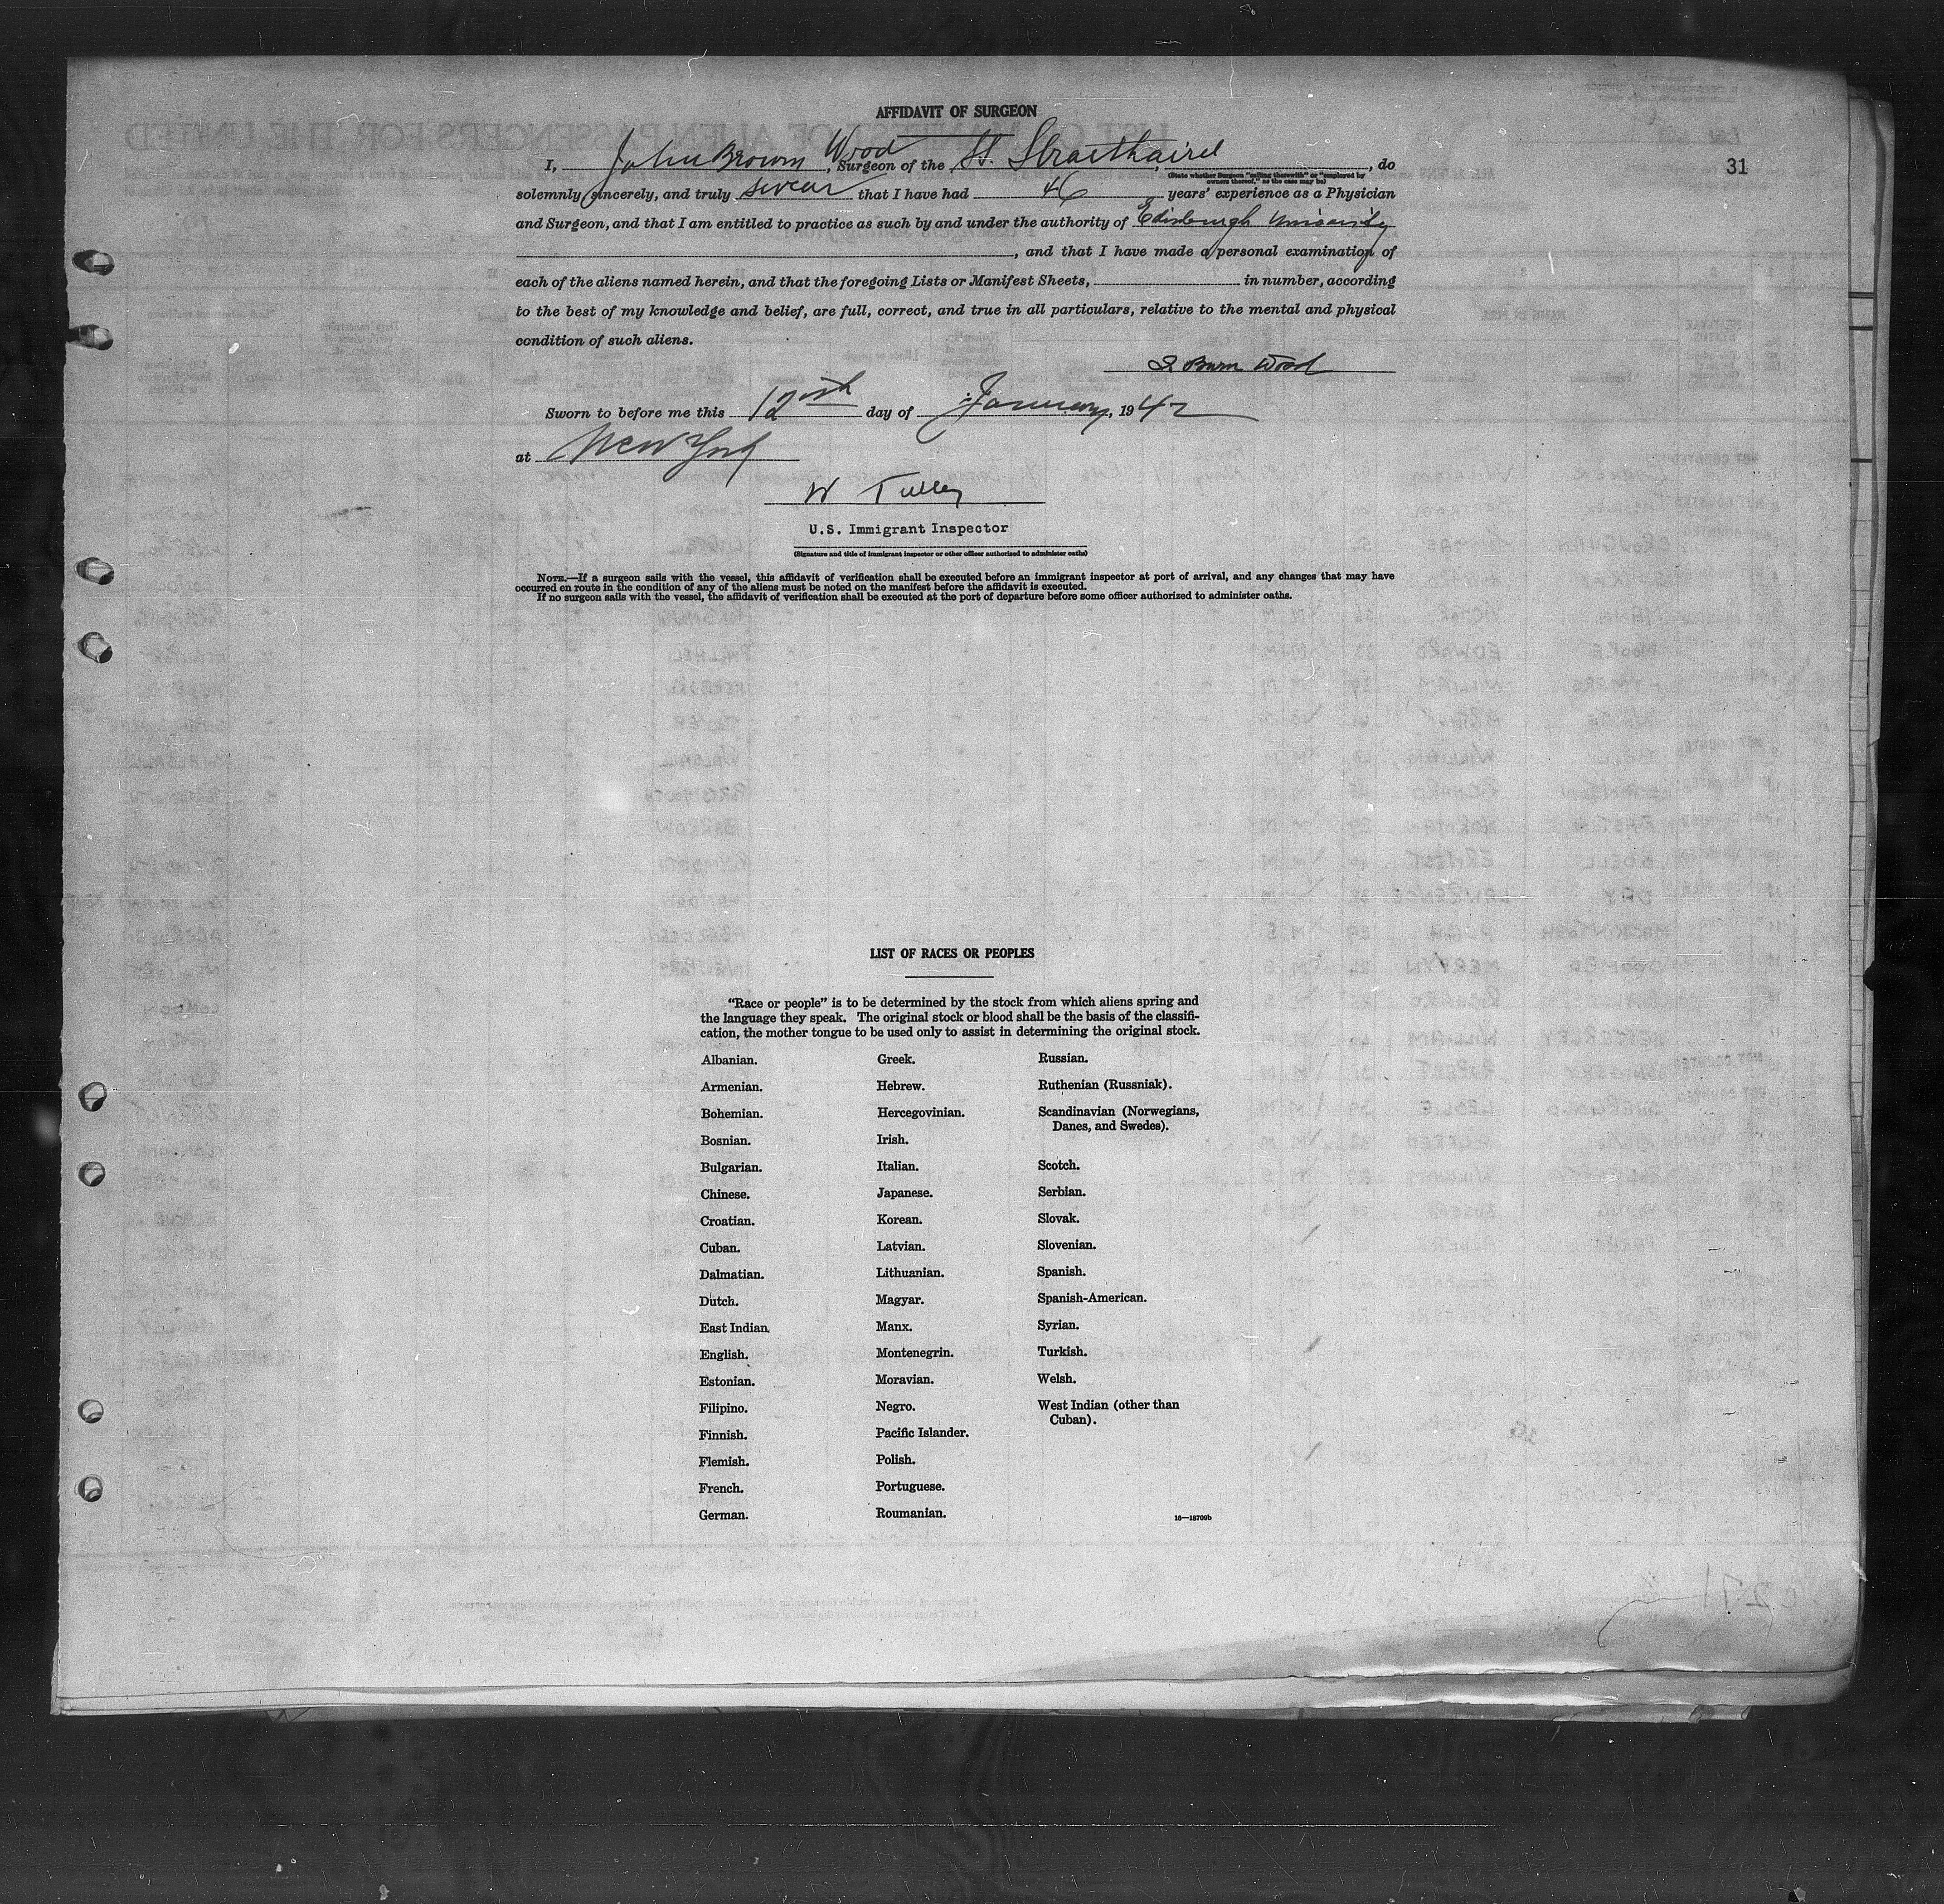 AFFIDAVIT OF SURGEON
31
I, John Brown Wood, Surgeon of the St. Straithaird, do
(State whether Surgeon "sailing therewith" or "employed by owners thereof," as the case may be)
solemnly, sincerely, and truly swear that I have had 46 years' experience as a Physician
and Surgeon, and that I am entitled to practice as such by and under the authority of Edinburgh University
, and that I have made a personal examination of
each of the aliens named herein, and that the foregoing Lists or Manifest Sheets, in number, according
to the best of my knowledge and belief, are full, correct, and true in all particulars, relative to the mental and physical
condition of such aliens.
Wood
Sworn to before me this 12th day of January, 1942
at New York
W Tulley
U.S. Immigrant Inspector
(Signature and title of immigrant inspector or other officer authorized to administer oaths)
NOTE.—If a surgeon sails with the vessel, this affidavit of verification shall be executed before an immigrant inspector at port of arrival, and any changes that may have
occurred en route in the condition of any of the aliens must be noted on the manifest before the affidavit is executed.
If no surgeon sails with the vessel, the affidavit of verification shall be executed at the port of departure before some officer authorized to administer oaths.
LIST OF RACES OR PEOPLES
"Race or people" is to be determined by the stock from which aliens spring and
the language they speak. The original stock or blood shall be the basis of the classifi-
cation, the mother tongue to be used only to assist in determining the original stock.
Albanian.
Armenian.
Bohemian.
Bosnian.
Bulgarian.
Chinese.
Croatian.
Cuban.
Dalmatian.
Dutch.
East Indian.
English.
Estonian.
Filipino.
Finnish.
Flemish.
French.
German.
Greek.
Hebrew.
Hercegovinian.
Irish.
Italian.
Japanese.
Korean.
Latvian.
Lithuanian.
Magyar.
Manx.
Montenegrin.
Moravian.
Negro.
Pacific Islander.
Polish.
Portuguese.
Roumanian.
Russian.
Ruthenian (Russniak).
Scandinavian (Norwegians,
Danes, and Swedes).
Scotch.
Serbian.
Slovak.
Slovenian.
Spanish.
Spanish-American.
Syrian.
Turkish.
Welsh.
West Indian (other than
Cuban).
16—18709b